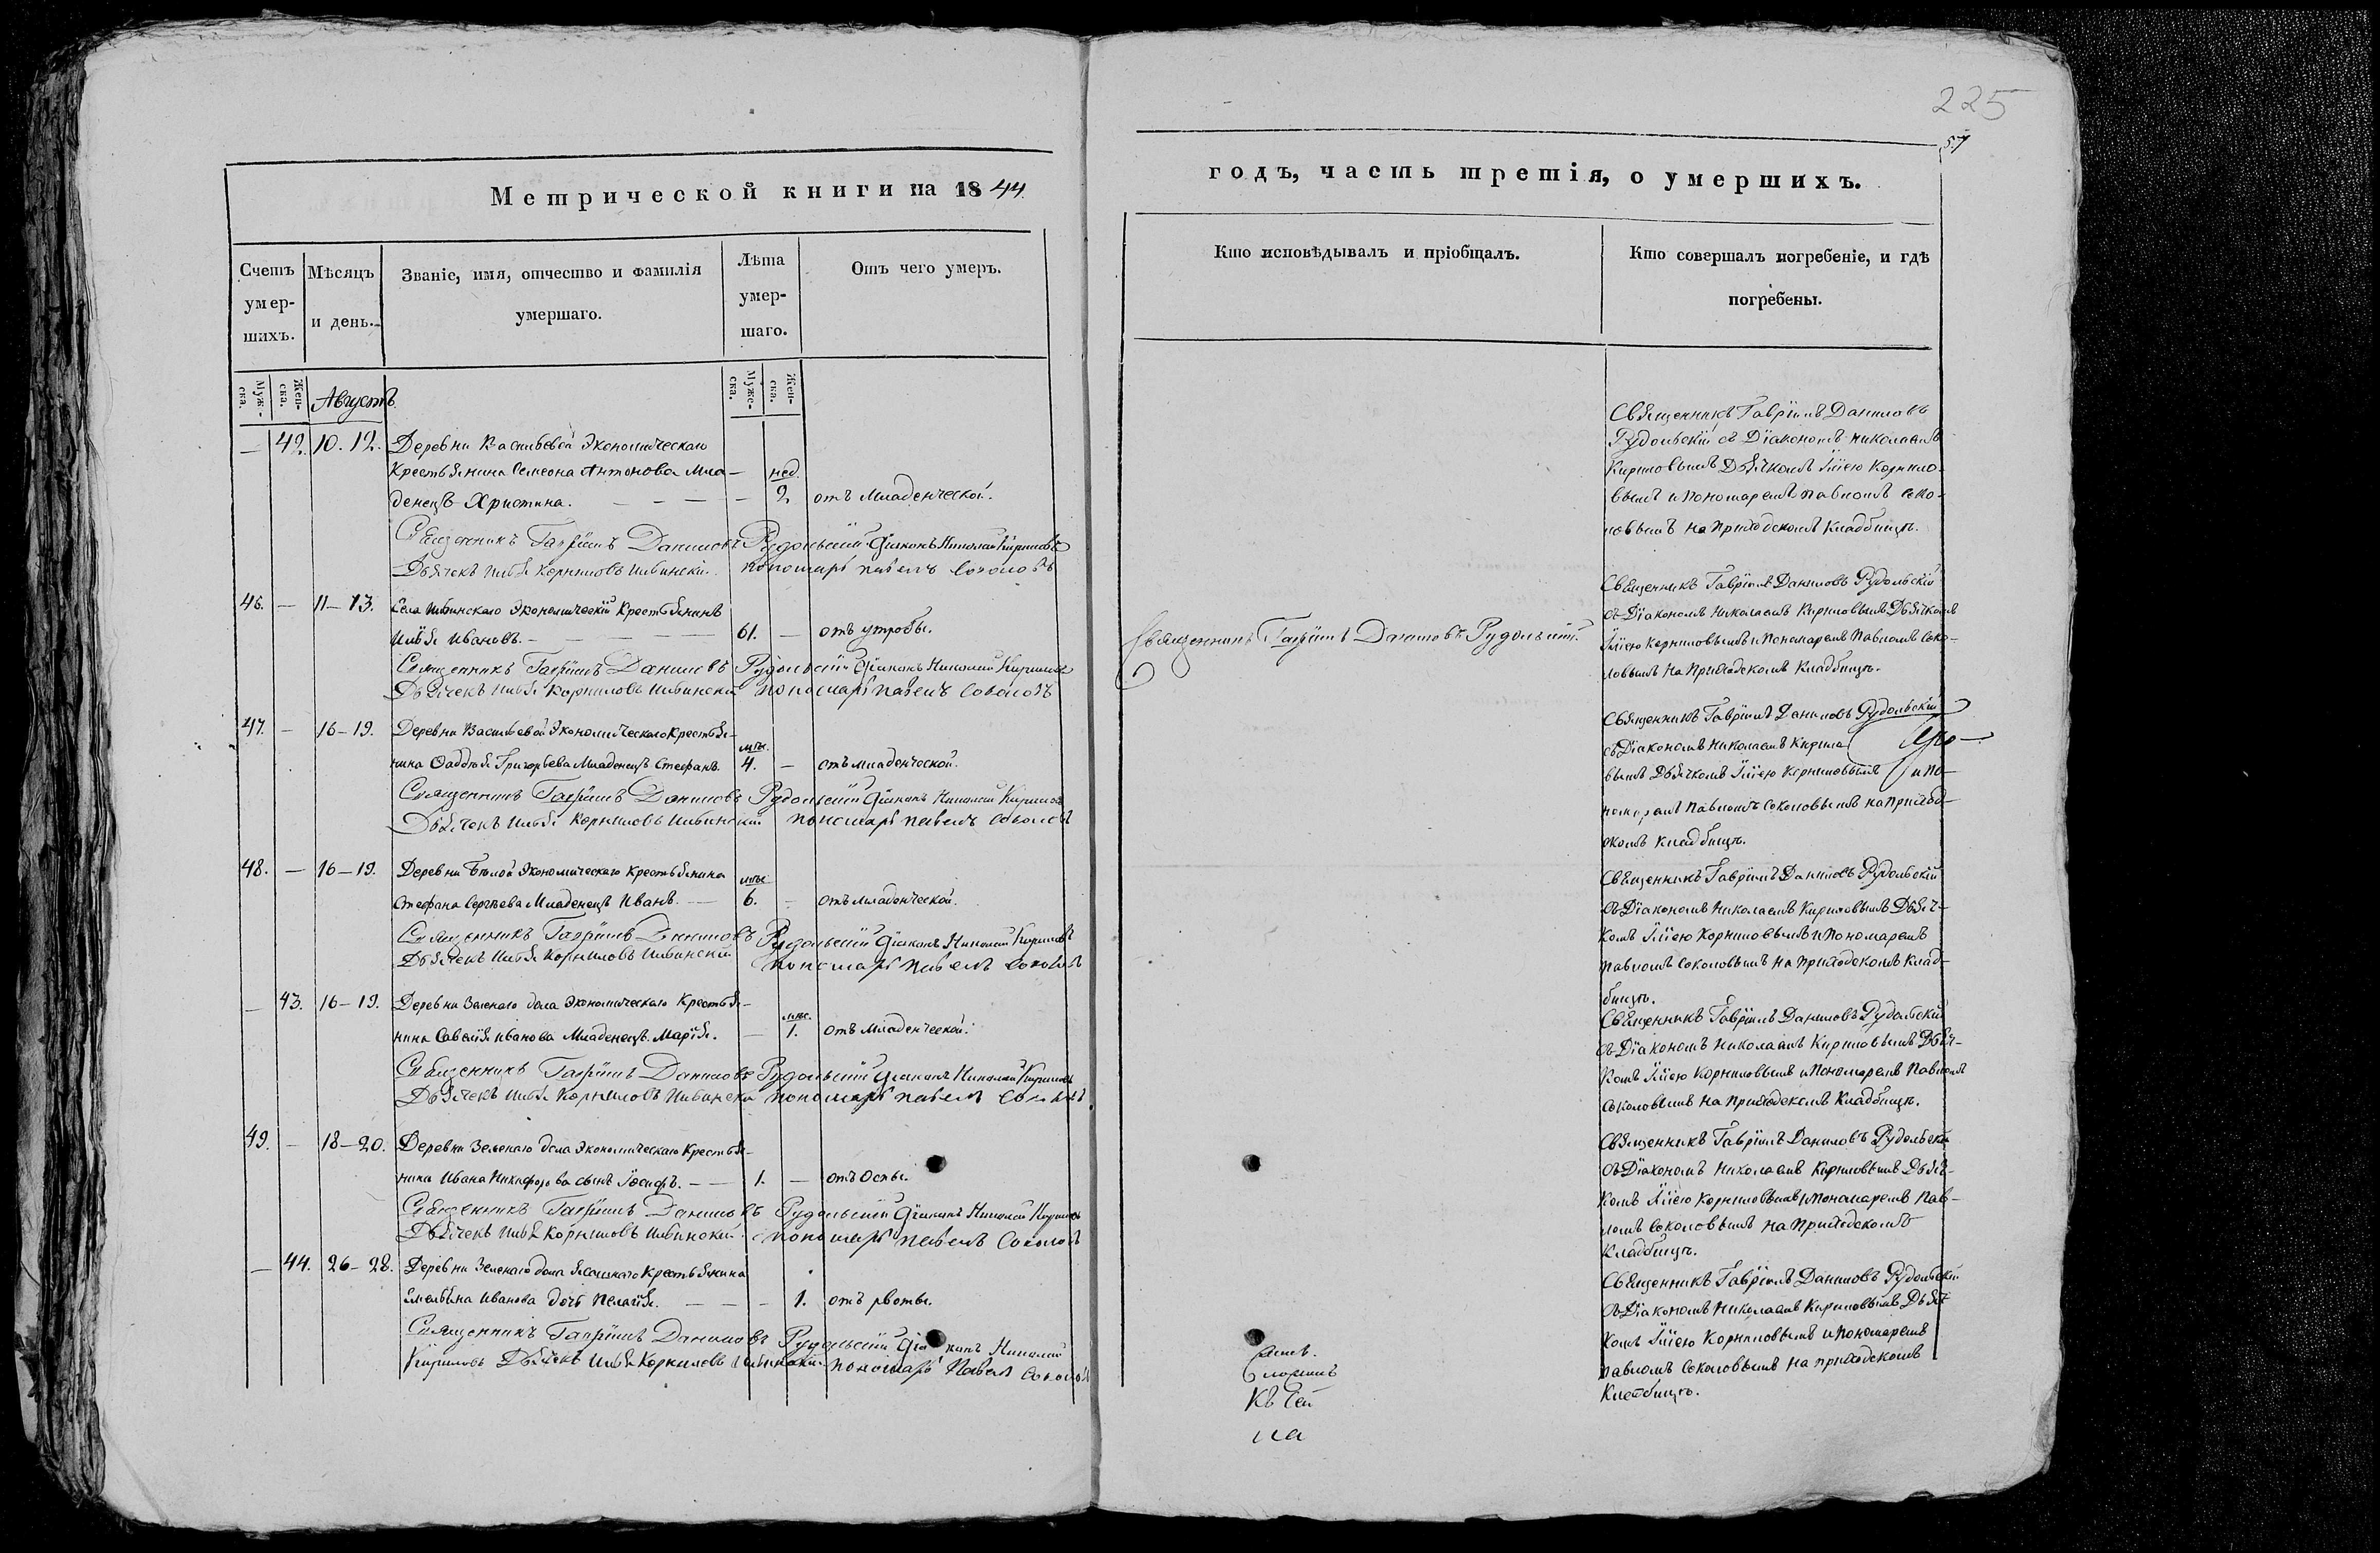 225
57
Метрической книги на 1844.
годъ, часть третія, о умершихъ.
Счетъ умер-шихъ.
Мѣсяцъ и день.
Званіе, имя, отчество и фамилія умершаго.
Лѣта умер-шаго.
Отъ чего умеръ.
Кто исповѣдывалъ и пріобщалъ.
Кто совершалъ погребеніе, и гдѣ погребены.
Муж-ска.
Жен-ска.
Августъ
Муже-ска.
Жен-ска.
— 42. 10. 12. Деревни Васильевой Экономическаго
Крестьянина Семеона Антонова Мла- нед.
денецъ Христина. — — — — 2 отъ Младенческой.
Священникъ Гавріилъ Даниловъ Рудольскій Діаконъ Николай Кириловъ
Дьячекъ Илья Корниловъ Ивински пономарь Павелъ Соколовъ
Священникъ Гавріилъ Даниловъ
Рудольскій съ Діакономъ Николаемъ
Кириловымъ Дьячкомъ Иліею Корнило-
вымъ и Пономаремъ Павломъ Соко-
ловымъ на Приходскомъ Кладбищѣ.
46. — 11—13. Села Ивинскаго Экономическій Крестьянинъ
Илья Ивановъ. — — — — 61. — отъ утробы.
Священникъ Гавріилъ Даниловъ Рудольскій Діаконъ Николай Кириловъ
Дьячекъ Илья Корниловъ Ивински пономарь Павелъ Соколовъ
Священникъ Гавріилъ Даниловъ Рудольскій.
Священникъ Гавріилъ Даниловъ Рудольскій
съ Діакономъ Николаемъ Кириловымъ Дьячкомъ
Иліею Корниловымъ и Пономаремъ Павломъ Соко-
ловымъ на Приходскомъ Кладбищѣ.
47. — 16—19. Деревни Васильевой Экономическаго Крестья-
мѣс.
нина Фаддѣя Григорьева Младенецъ Стефанъ. 4. — отъ младенческой.
Священникъ Гавріилъ Даниловъ Рудольскій Діаконъ Николай Кириловъ
Дьячекъ Илья Корниловъ Ивинскій пономарь Павелъ Соколовъ
Священникъ Гавріилъ Даниловъ Рудольскій
съ Діакономъ Николаемъ Кирило-
вымъ Дьячкомъ Иліею Корниловымъ и По-
номаремъ Павломъ Соколовымъ на Приход-
скомъ Кладбищѣ.
48. — 16—19. Деревни Бѣлой Экономическаго Крестьянина
мѣс.
Стефана Сергѣева Младенецъ Иванъ. — 6. — отъ младенческой.
Священникъ Гавріилъ Даниловъ Рудольскій Діаконъ Николай Кириловъ
Дьячекъ Илья Корниловъ Ивинскій пономарь Павелъ Соколовъ
Священникъ Гавріилъ Даниловъ Рудольскій
съ Діакономъ Николаемъ Кириловымъ Дьяч-
комъ Иліею Корниловымъ и Пономаремъ
Павломъ Соколовымъ на Приходскомъ Клад-
бищѣ.
— 43. 16—19. Деревни Зеленаго дола Экономическаго Крестья-
мѣс.
нина Савелія Иванова Младенецъ Марія. — 1. отъ Младенческой.
Священникъ Гавріилъ Даниловъ Рудольскій Діаконъ Николай Кириловъ
Дьячекъ Илья Корниловъ Ивински пономарь Павелъ Соколовъ
Священникъ Гавріилъ Даниловъ Рудольскій
съ Діакономъ Николаемъ Кириловымъ Дьяч-
комъ Иліею Корниловымъ и Пономаремъ Павломъ
Соколовымъ на Приходскомъ Кладбищѣ.
49. — 18—20. Деревни Зеленаго дола Экономическаго Крестья-
нина Ивана Никифорова сынъ Іосифъ. — — 1. — отъ Оспы.
Священникъ Гавріилъ Даниловъ Рудольскій Діаконъ Николай Кириловъ
Дьячекъ Илья Корниловъ Ивинский пономарь Павелъ Соколовъ
Священникъ Гавріилъ Даниловъ Рудольскій
съ Діакономъ Николаемъ Кириловымъ Дьяч-
комъ Иліею Корниловымъ и Пономаремъ Пав-
ломъ Соколовымъ на Приходскомъ
Кладбищѣ.
— 44. 26—28. Деревни Зеленаго дола Ясашнаго Крестьянина
Емельяна Иванова дочь Пелагія. — — — 1. отъ рвоты.
Священникъ Гавріилъ Даниловъ Рудольскій Діаконъ Николай
Кириловъ Дьячекъ Илья Корниловъ Ивинскій пономарь Павелъ Соколовъ
Священникъ Гавріилъ Даниловъ Рудольскій
съ Діакономъ Николаемъ Кириловымъ Дьяч-
комъ Иліею Корниловымъ и Пономаремъ
Павломъ Соколовымъ на Приходскомъ
Кладбищѣ.
Къ сей
на